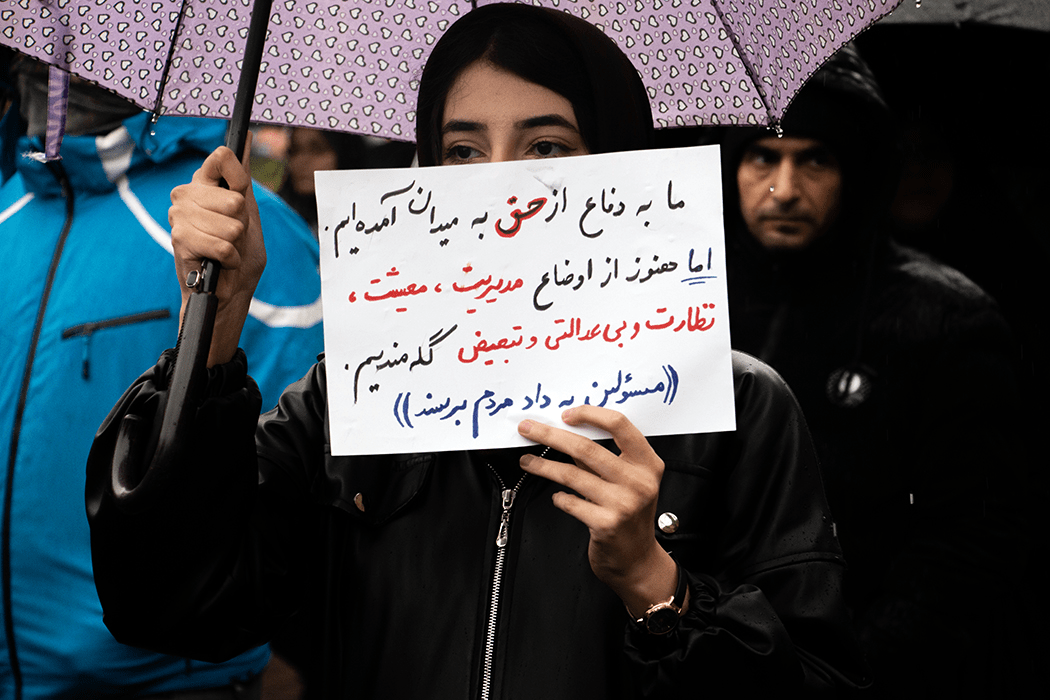 ما به دفاع از حق به میدان آمده‌ایم.
اما هنوز از اوضاع مدیریت، معیشت،
نظارت و بی عدالتی و تبعیض گله‌مندیم.
((مسئولین به داد مردم برسند))